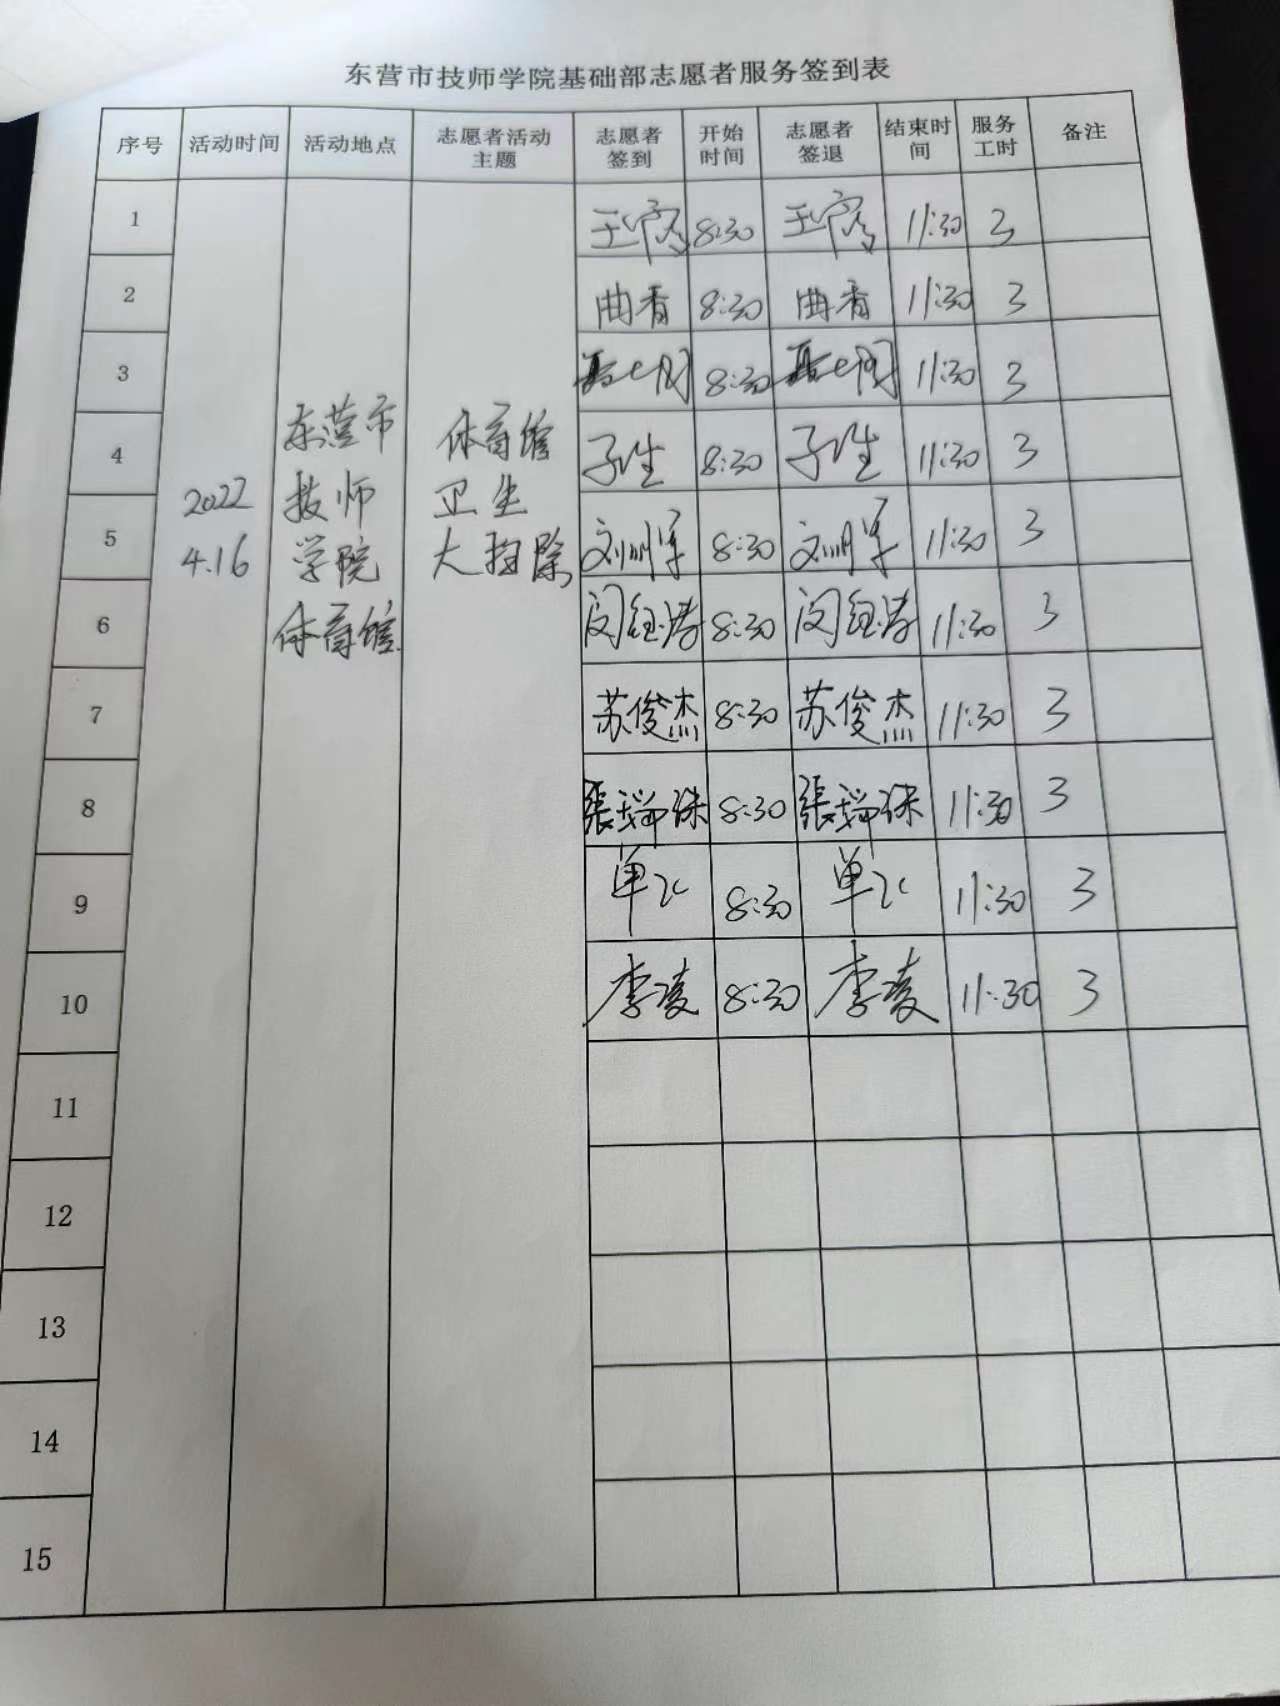 东营市技师学院基础部志愿者服务签到表
序号 活动时间 活动地点 志愿者活动主题 志愿者签到 开始时间 志愿者签退 结束时间 服务工时 备注
2022
4.16
东营市
技师
学院
体育馆
体育馆
卫生
大扫除
1 8:30 11:30 3
2 曲香 8:30 曲香 11:30 3
3 8:30 11:30 3
4 8:30 11:30 3
5 8:30 11:30 3
6 8:30 11:30 3
7 苏俊杰 8:30 苏俊杰 11:30 3
8 張瑞珠 8:30 張瑞珠 11:30 3
9 8:30 11:30 3
10 李凌 8:30 李凌 11:30 3
11
12
13
14
15